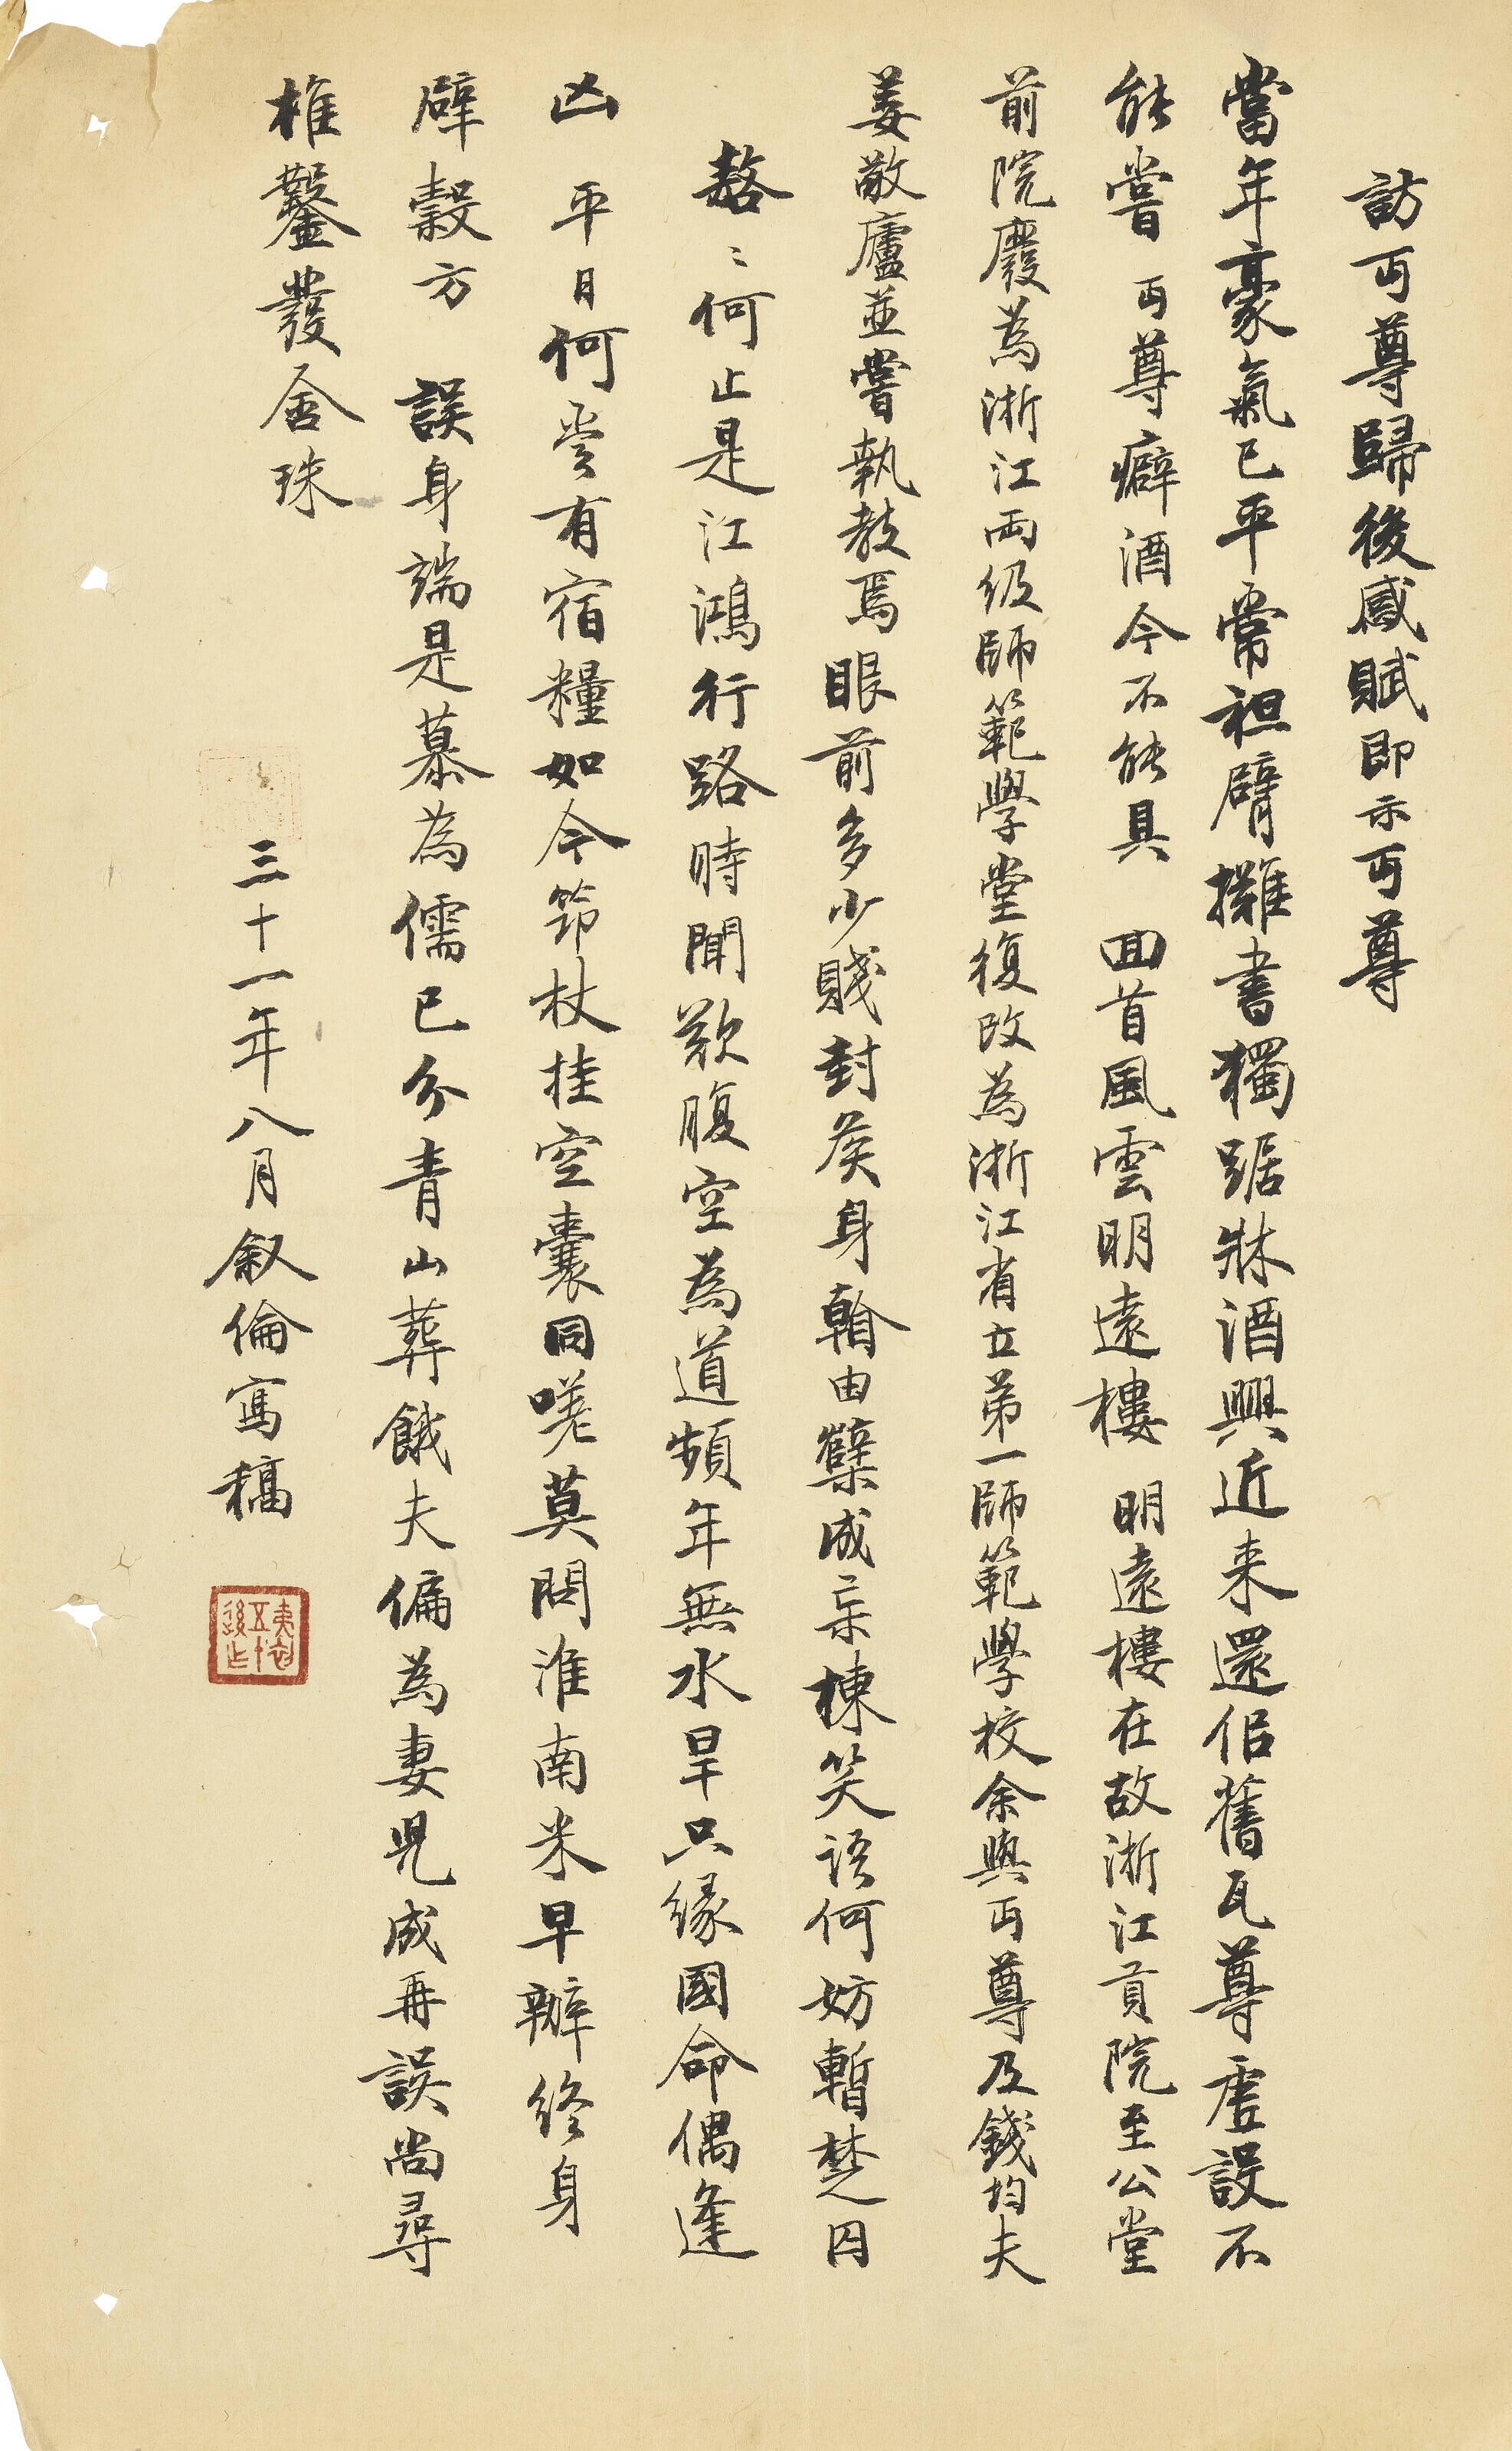 訪丏尊歸後感賦即示丏尊
當年豪氣已平常袒臂攤書獨踞牀酒興近来還侶舊瓦尊虛設不
能嘗丏尊癖酒今不能具回首風雲明遠樓明遠樓在故浙江貢院至公堂
前院廢為浙江兩级師範學堂復改為浙江省立苐一師範學校余與丏尊及錢均夫
姜敬廬並嘗執教焉眼前多少賤封矦身翰由糵成梁棟笑語何妨暫楚囚
嗸〻何止是江鴻行路時聞歎腹空為道頻年無水旱只緣國命偶逢
凶平日何嘗有宿糧如今笻杖挂空囊同嗟莫問淮南米早辦終身
辟穀方誤身端是慕為儒已分青山葬餓夫偏為妻児成再誤尚尋
椎鑿發含珠
三十一年八月叙倫寫稿
夷初五十後作